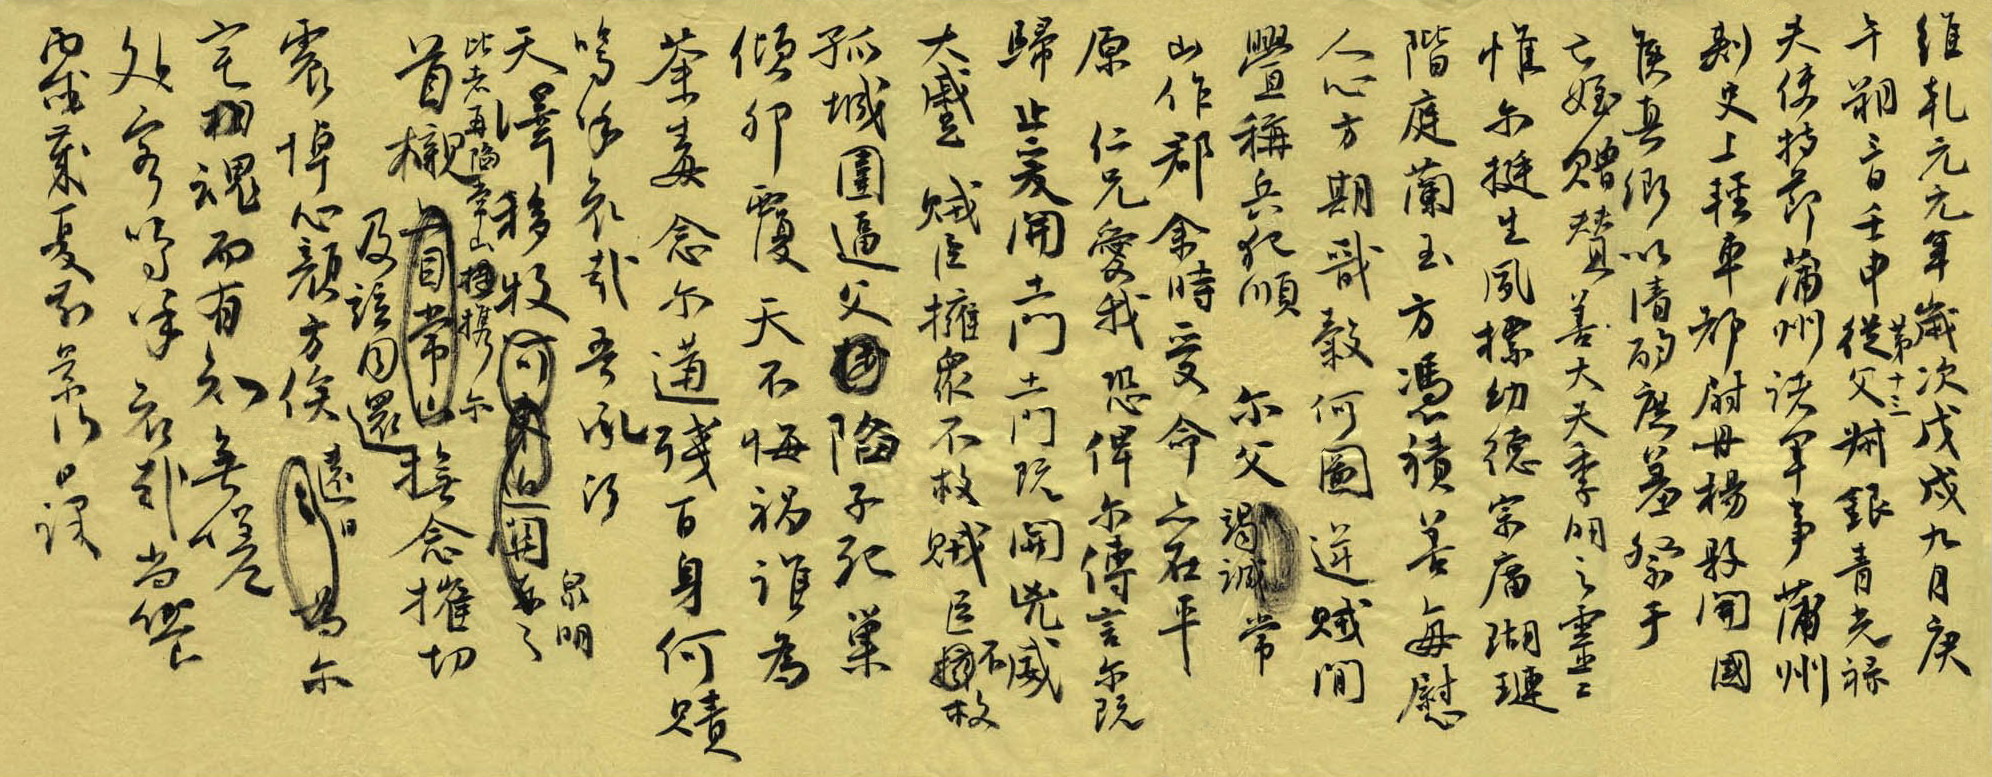 維乾元元年歲次戊戌九月庚
午朔三日壬申第十三從父銀青光祿
夫使持節蒲州諸軍事蒲州
刺史上輕車都尉丹楊縣開國
侯真卿以清酌庶羞祭于
亡姪贈贊善大夫季明之靈
惟爾挺生夙標幼德宗廟瑚璉
階庭蘭玉方馮積善每慰
人心方期戩穀何圖逆賊閒
釁稱兵犯順爾父竭誠常
山作郡余時受命亦在平
原仁兄愛我恐俾爾傳言爾既
歸止爰開土門土門既開兇威
大蹙賊臣擁眾不救賊臣不救
孤城圍逼父陷子死巢
傾卵覆天不悔禍誰為
荼毒念爾遘殘百身何贖
嗚呼哀哉吾承
天澤移牧河東近泉明
比者再陷常山攜爾
首櫬自常山撫念摧切
及茲同還
震悼心顏方俟遠日爲爾
宅相魂而有知無嗟
久客嗚呼哀哉尚饗